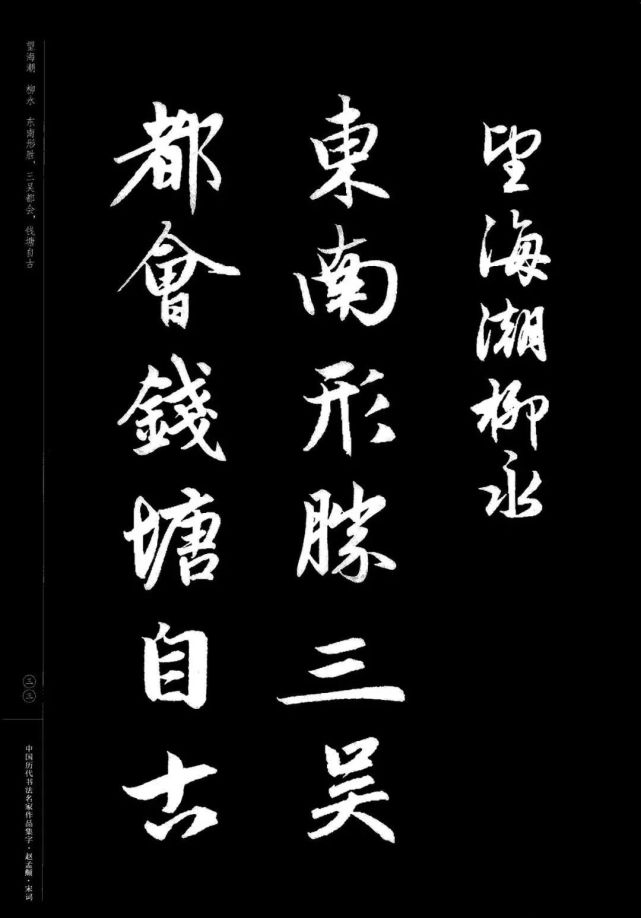 望海潮柳永
東南形勝三吴
都會錢塘自古
望海潮 柳永 东南形胜，三吴都会，钱塘自古
三三
中国历代书法名家作品集字·赵孟頫·宋词